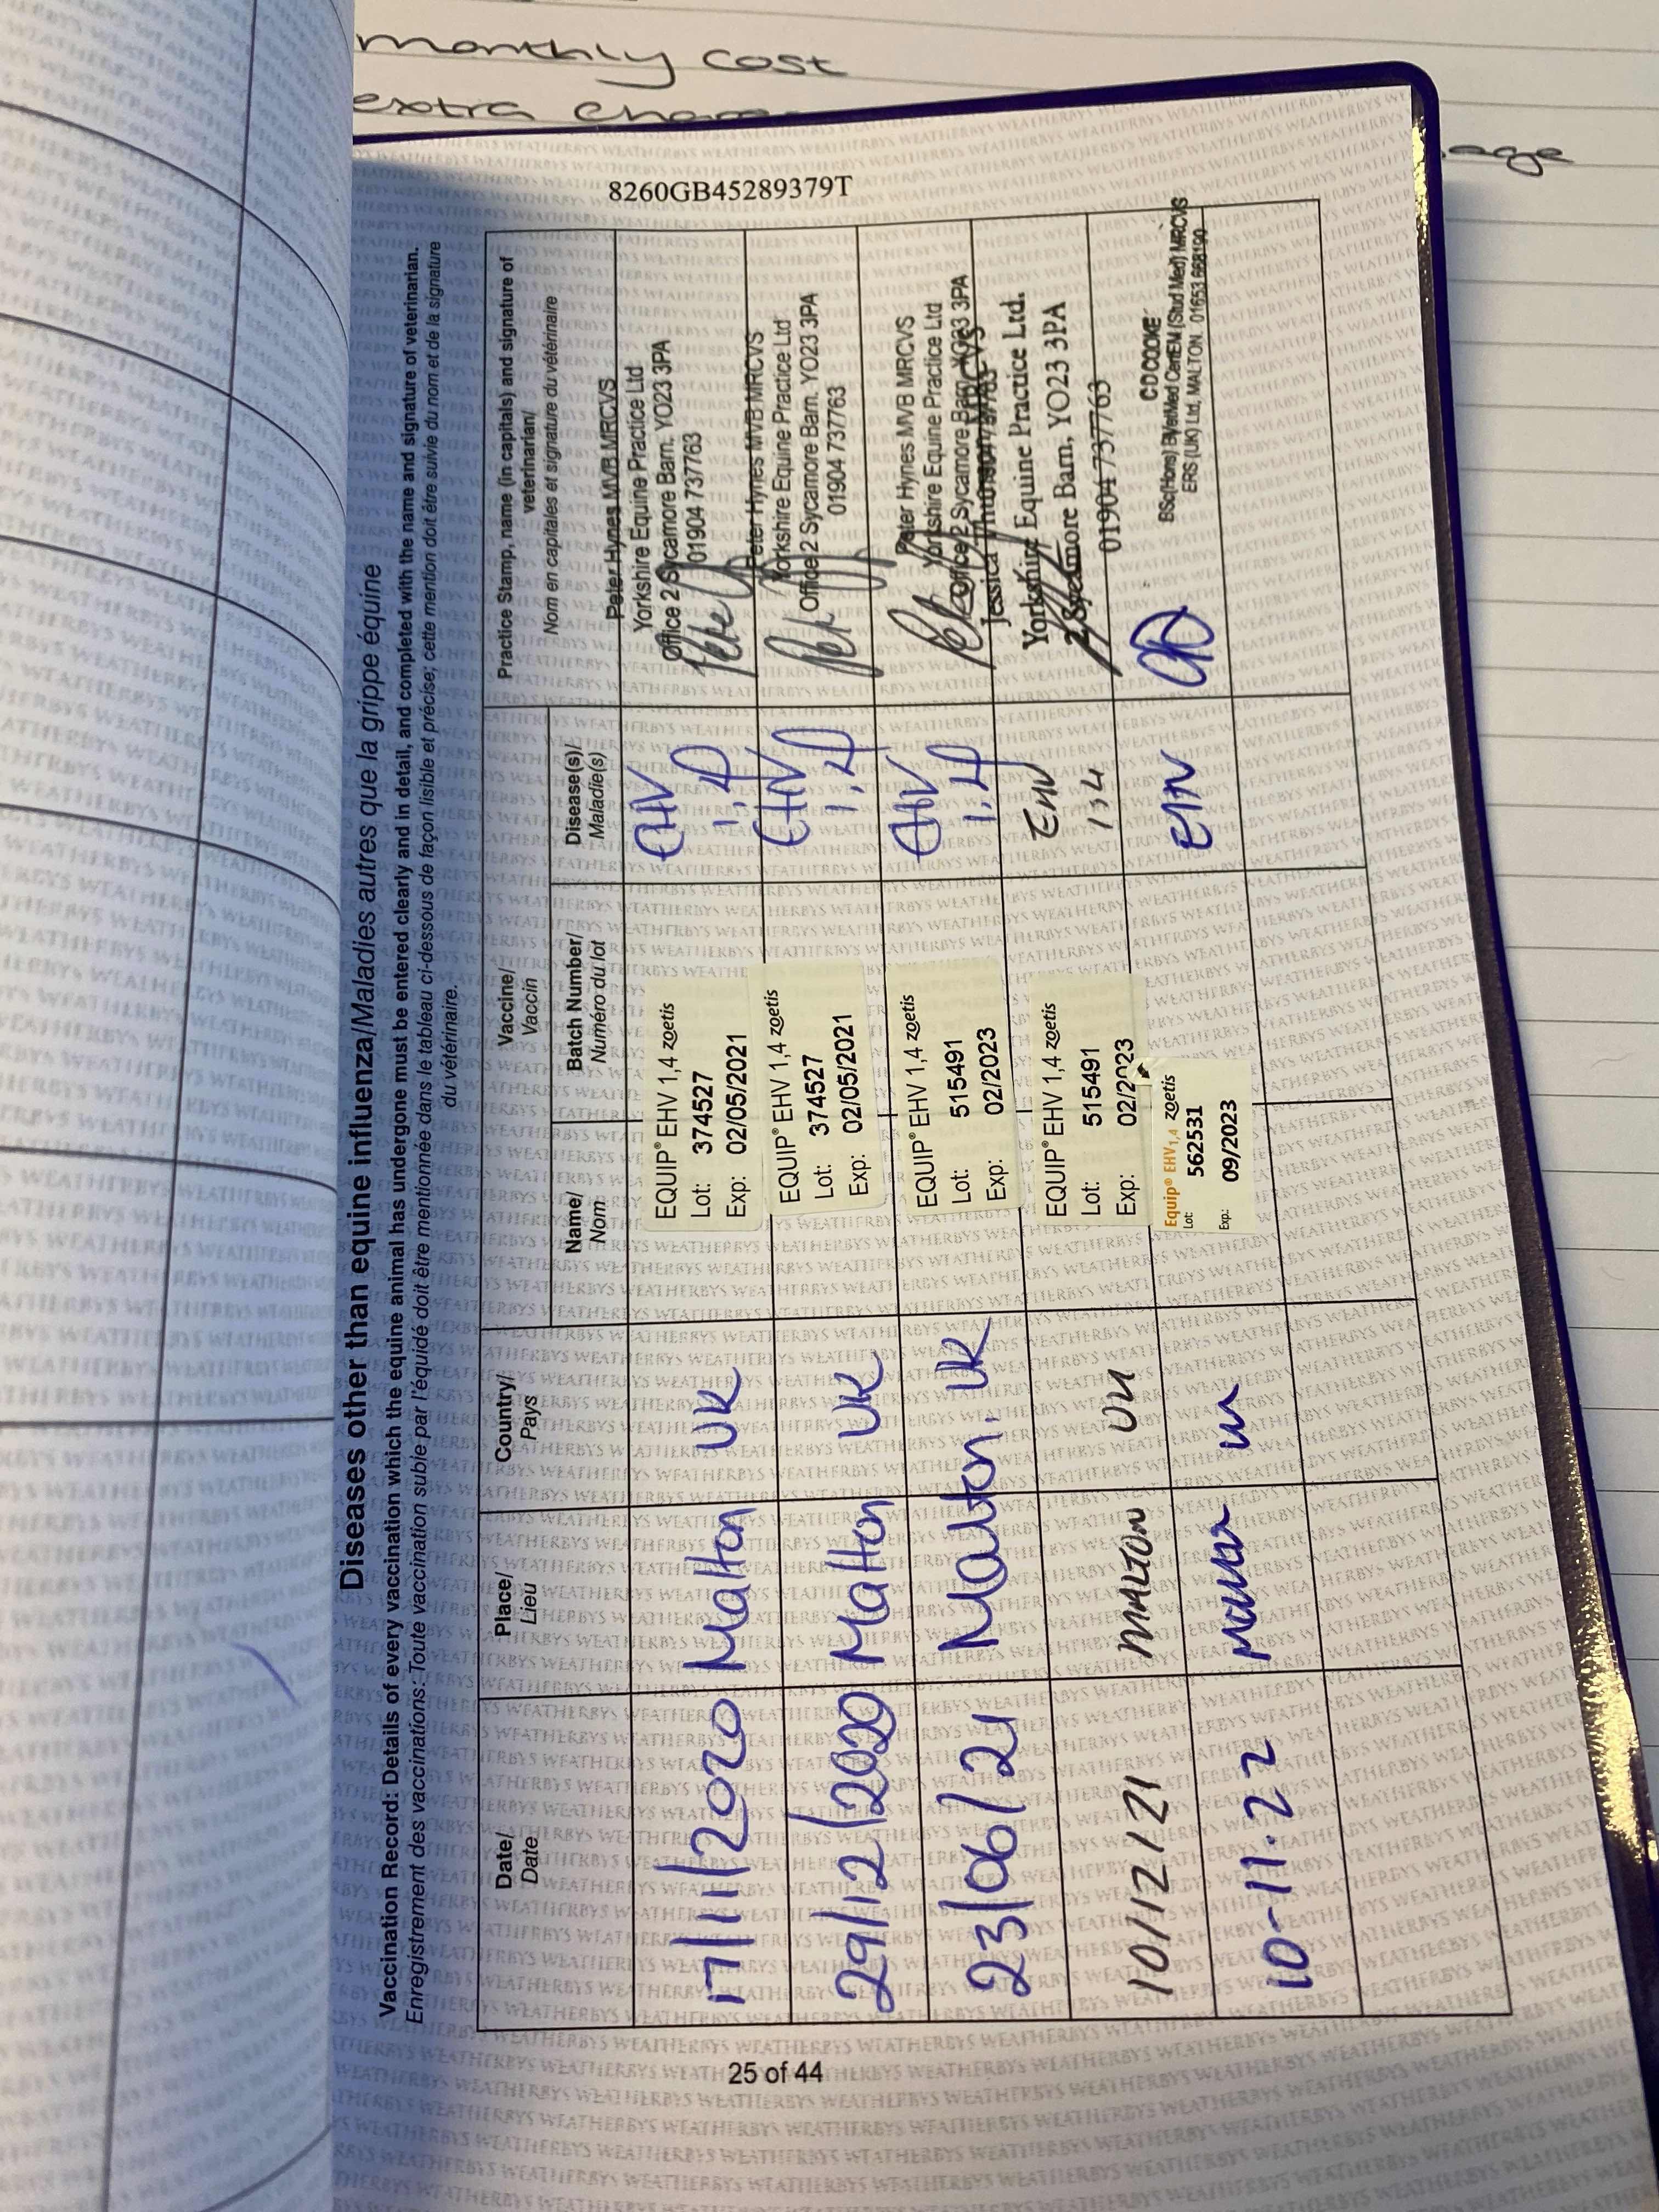 monthly cost
extra
age
8260GB45289379T
Diseases other than equine influenza/Maladies autres que la grippe équine
Vaccination Record: Details of every vaccination which the equine animal has undergone must be entered clearly and in detail, and completed with the name and signature of veterinarian.
Enregistrement des vaccinations: Toute vaccination subie par l'équidé doit être mentionnée dans le tableau ci-dessous de façon lisible et précise; cette mention doit être suivie du nom et de la signature
du vétérinaire.
Date/
Date
Place/
Lieu
Country/
Pays
Vaccine/
Vaccin
Name/
Nom
Batch Number/
Numéro du lot
Disease(s)/
Maladie(s)
Practice Stamp, name (in capitals) and signature of
veterinarian/
Nom en capitales et signature du vétérinaire
17/11/2020
Malton
UK
EQUIP® EHV 1,4 zoetis
Lot: 374527
Exp: 02/05/2021
EHV
1,4
Peter Hynes MVB MRCVS
Yorkshire Equine Practice Ltd
Office 2 Sycamore Barn. YO23 3PA
01904 737763
29/12/2020
Malton
UK
EQUIP® EHV 1,4 zoetis
Lot: 374527
Exp: 02/05/2021
EHV
1,4
Peter Hynes MVB MRCVS
Yorkshire Equine Practice Ltd
Office 2 Sycamore Barn. YO23 3PA
01904 737763
23/06/21
Malton.
UK
EQUIP® EHV 1,4 zoetis
Lot: 515491
Exp: 02/2023
EHV
1,4
Peter Hynes MVB MRCVS
Yorkshire Equine Practice Ltd
Office 2 Sycamore Barn. YO23 3PA
10/12/21
MALTON
UK
EQUIP® EHV 1,4 zoetis
Lot: 515491
Exp: 02/2023
EHV
1,4
Jessica Thompson MRCVS
Yorkshire Equine Practice Ltd.
2 Sycamore Barn, YO23 3PA
01904 737763
10-11.22
Malton
UK
Equip® EHV1,4 zoetis
Lot: 562531
Exp.: 09/2023
EHV
C D COOKE
BSc(Hons) BVetMed CertEM (Stud Med) MRCVS
ERS (UK) Ltd, MALTON. 01653 668190
25 of 44